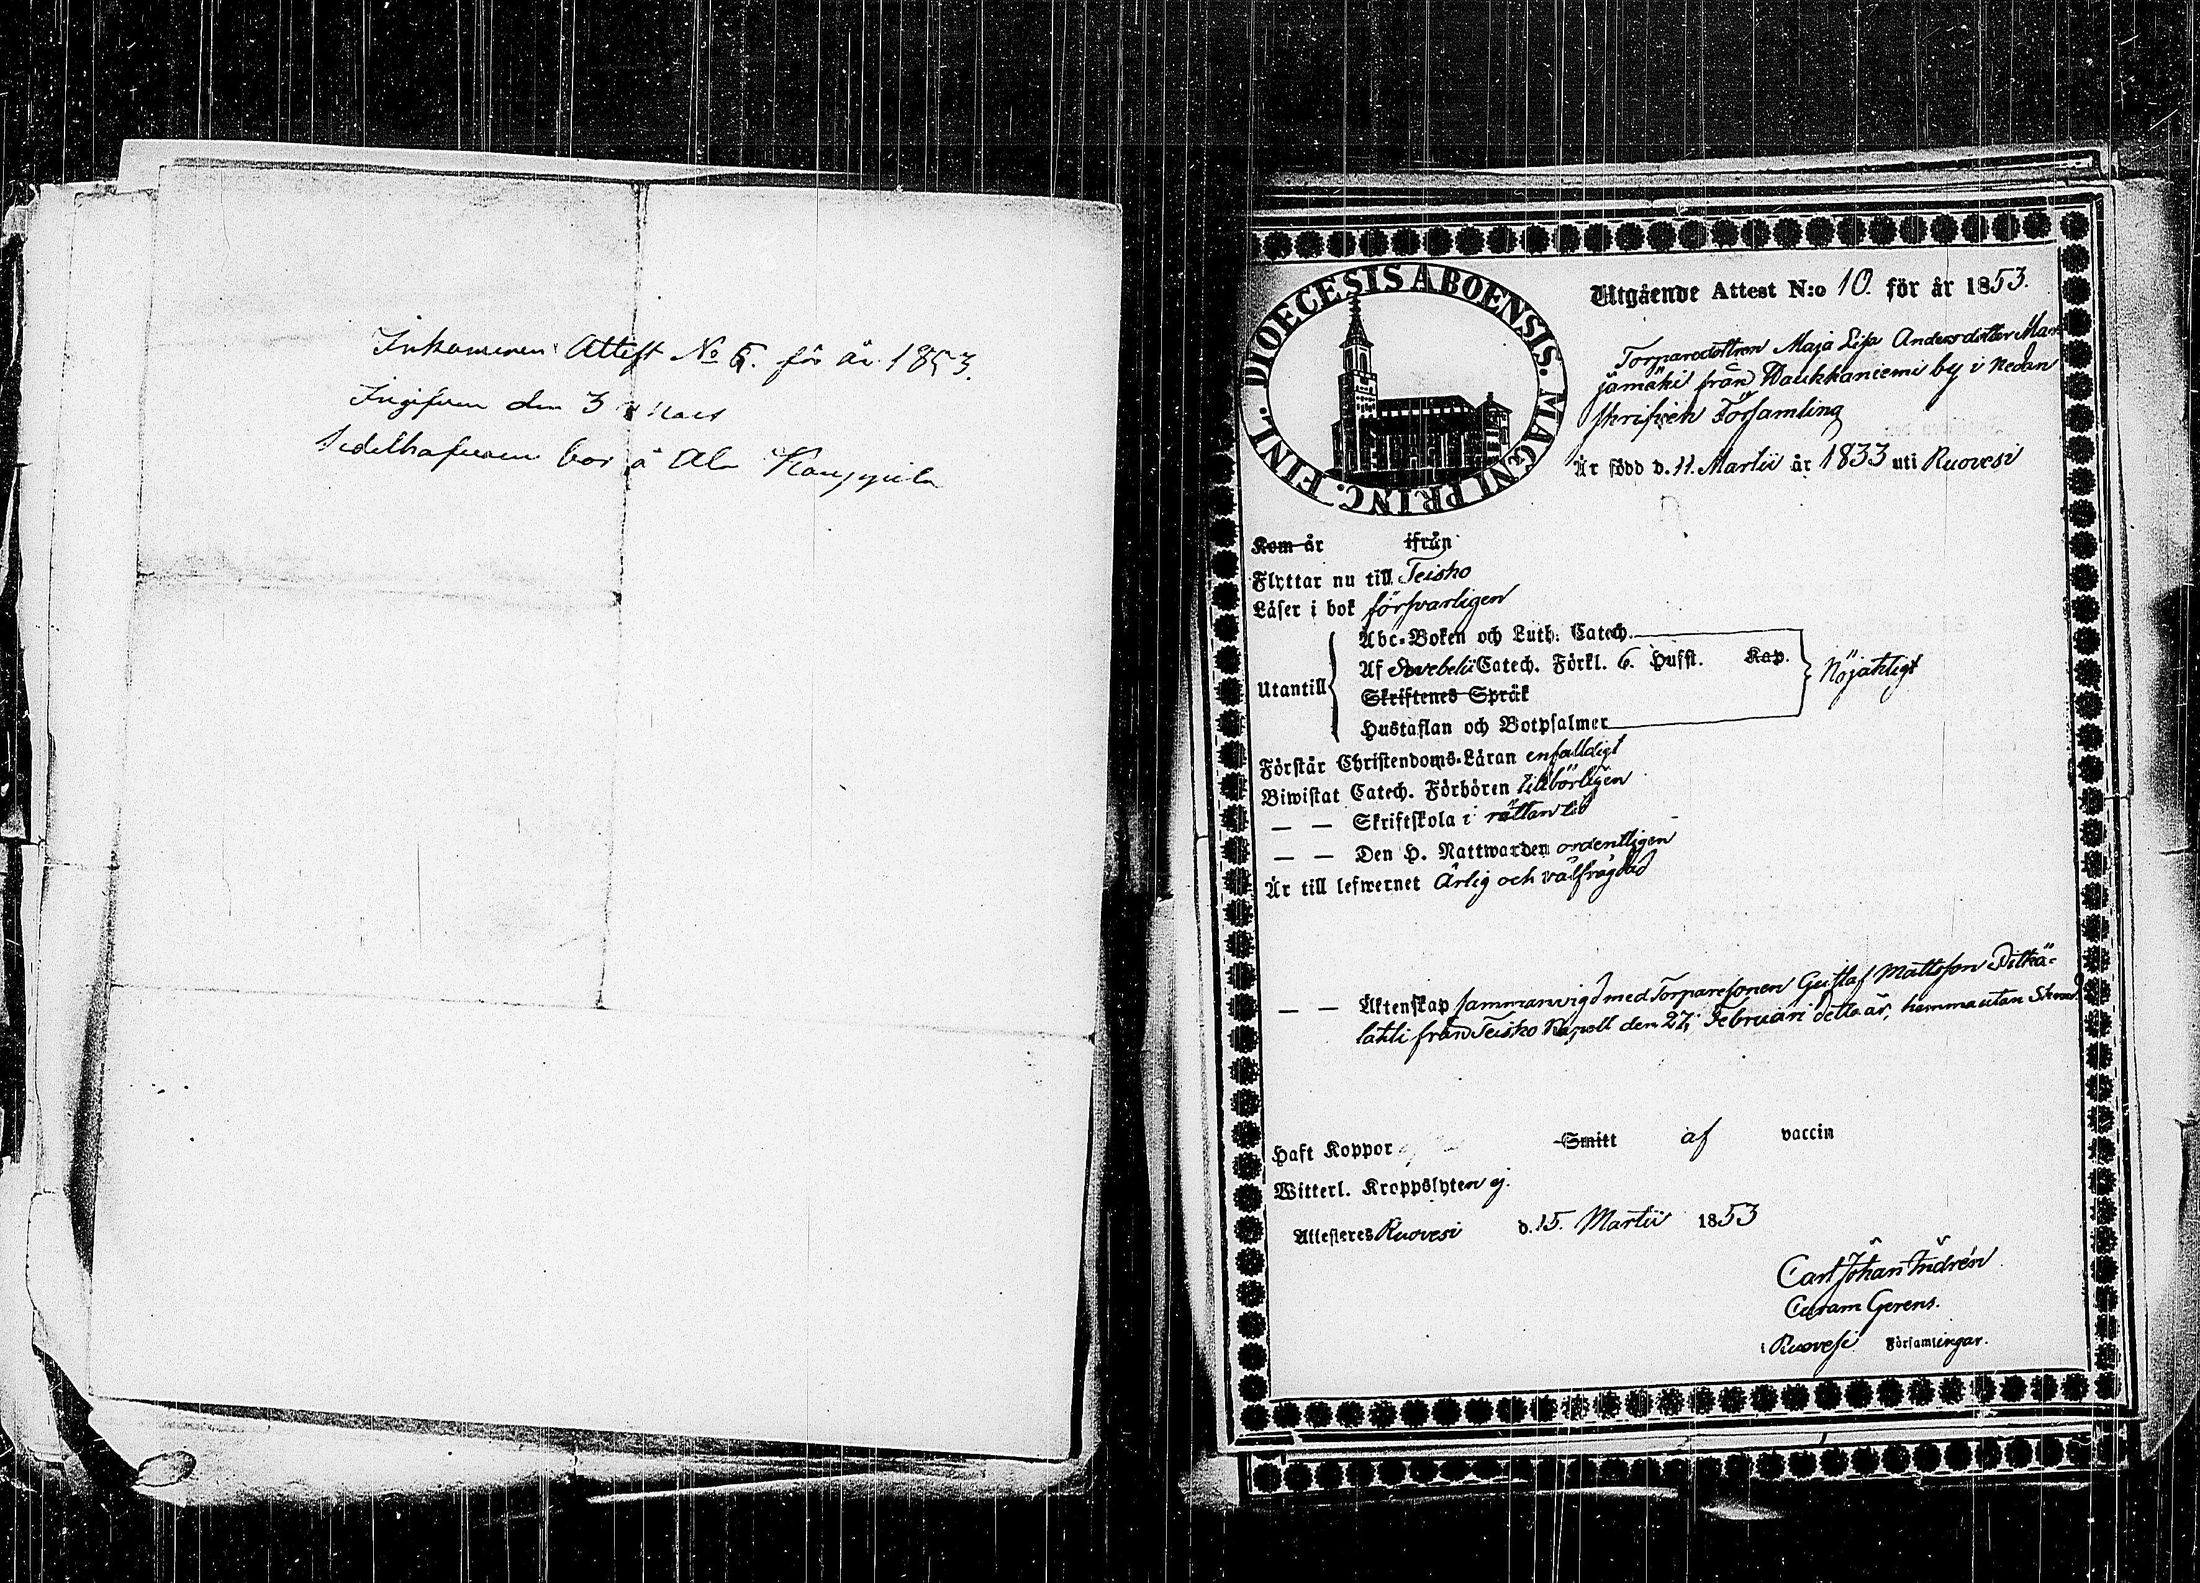 Inkommen Attest No 6. för år 1853.
Ingifven den 3 Mars
Sedelhafvaren bor å Ala Kauppila
DIOECESIS ABOENSIS. MAGNI PRINC. FINL.
Utgående Attest N:o 10. för år 1853.
Torparedottren Maja Lisa Andersdotter
jämäki från Waukkaniemi by i nedan
skrifven Församling
Är född d. 11. Martii år 1833 uti Ruovesi
Kom år ifrån
Flyttar nu till Teisko
Läser i bok försvarligen
Abc-Boken och Luth. Catech.
Af Svebelii Catech. Förkl. 6. Hufst. Kap.
Utantill
Nöjaktigt
Skriftenes Språk
Hustaflan och Botpsalmer
Förstår Christendoms-Läran enfaldigt
Biwistat Catech. Förhören tillbörligen
— — Skriftskola i rättan tid
— — Den H. Nattwarden ordentligen
Är till lefwernet Ärlig och välfrägdad
— — Äktenskap sammanvigd med Torparesonen Gustaf Mattsson Pitkä-
lahti från Teisko Kapell den 27 Februari detta år, hemma utan
Haft Koppor Smitt af vaccin
Witterl. Kroppslyten ej.
Attesteres Ruovesi d. 15. Martii 1853
Carl Johan Indrén
Curam Gerens.
i Ruovesi Församlingar.